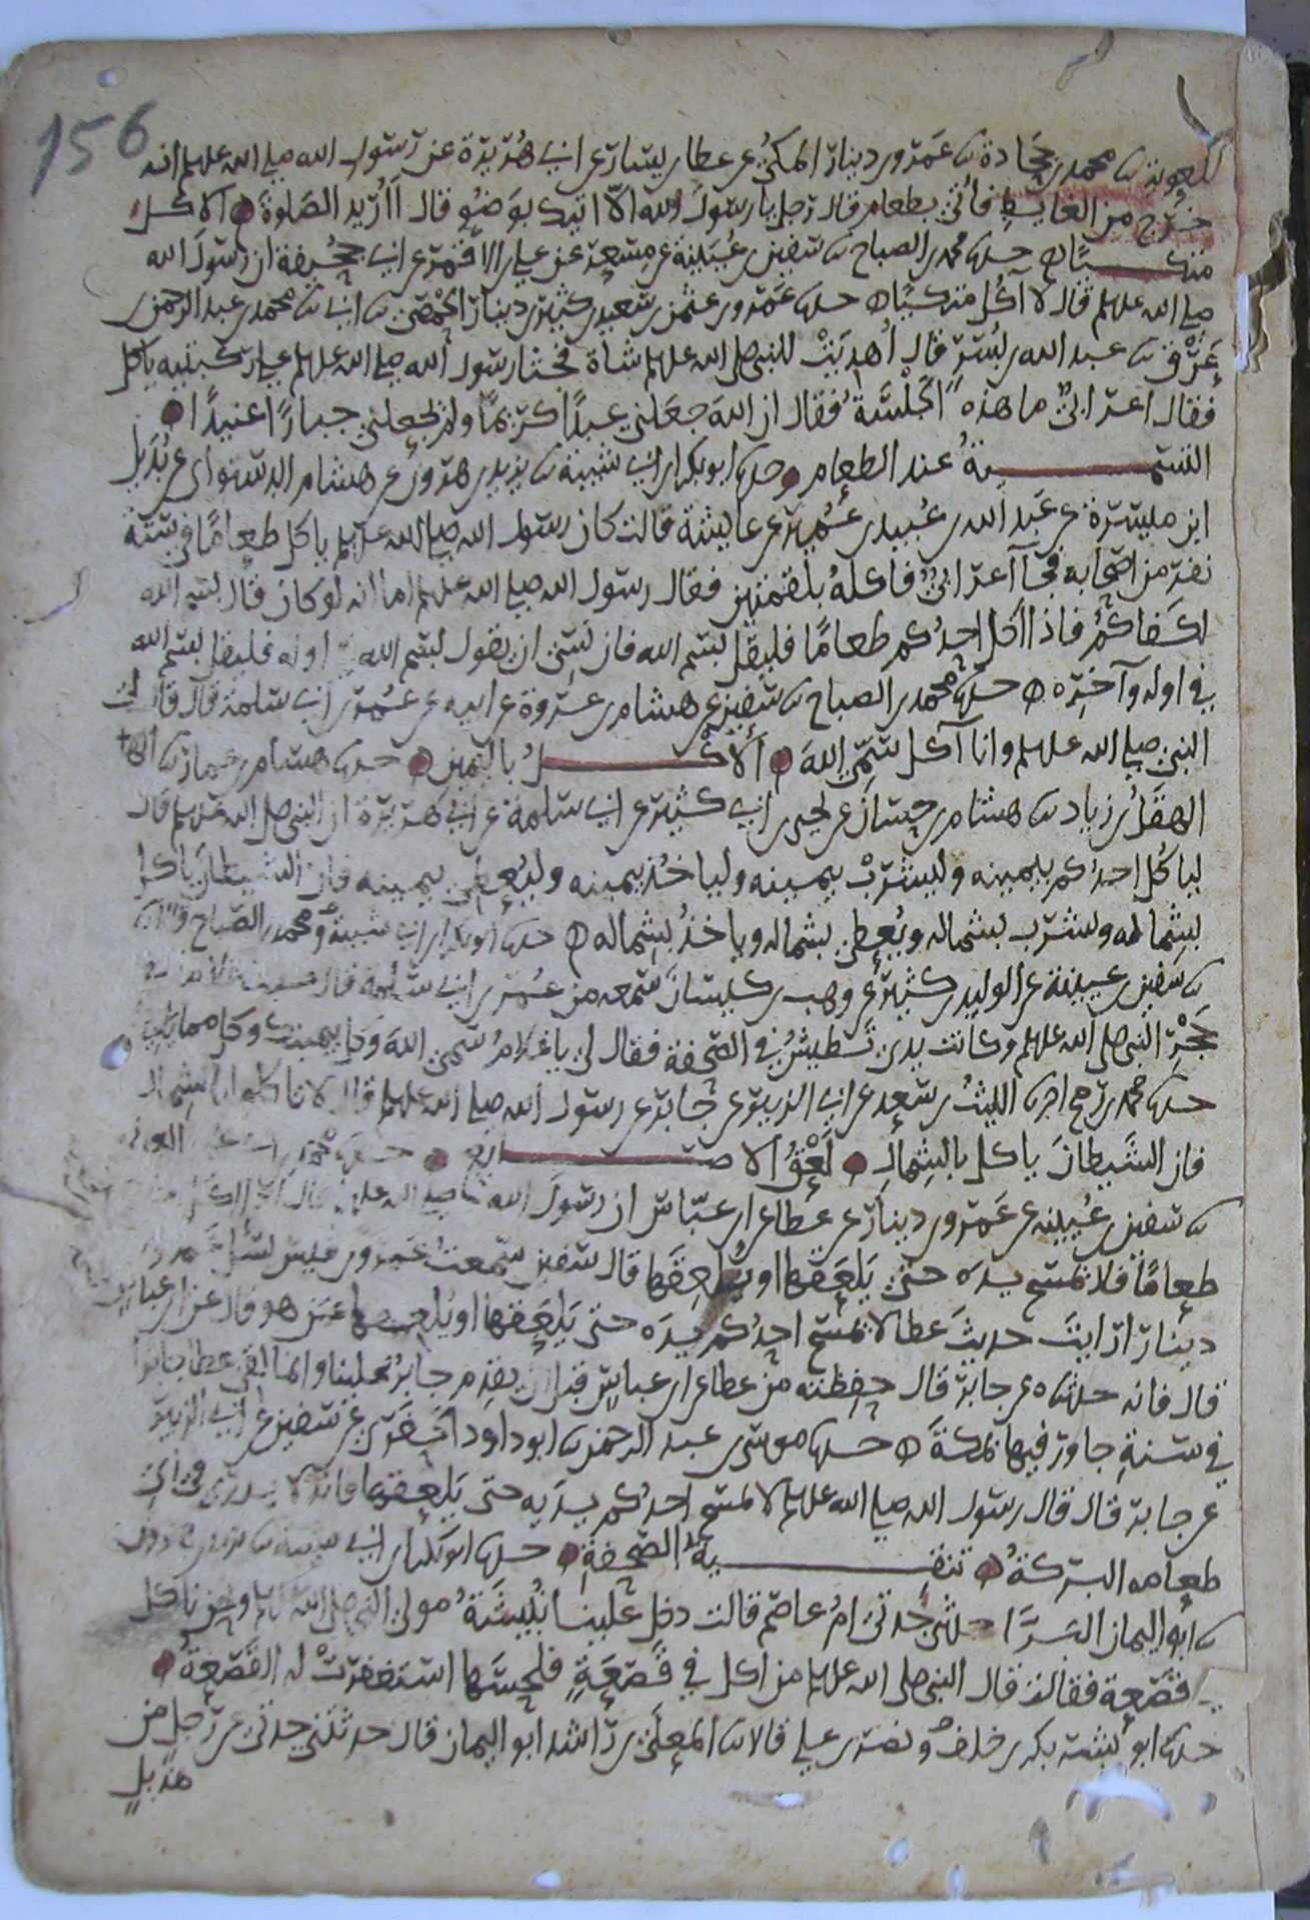 156
معوية ثنا محمد بن جحادة ثنا عمرو بن دينار المكي عن عطا بن يسار عن ابي هريرة عن رسول الله صلى الله عليه وسلم انه
خرج من الغايط فأتي بطعام فقال رجل يا رسول الله ألا آتيك بوضو قال أأريد الصلوة الاكل
متكـــــيا حدثنا محمد بن الصباح ثنا سفين بن عيينة عن مسعر عن علي بن الاقمر عن ابي جحيفة ان رسول الله
صلى الله عليه وسلم قال لا آكل متكيا حدثنا عمرو بن عثمن بن سعيد بن كثير بن دينار الحمصي ثنا ابي ثنا محمد بن عبد الرحمن بن
عرق ثنا عبد الله بن بسر قال أهديت للنبي صلى الله عليه وسلم شاة فجثا رسول الله صلى الله عليه وسلم على ركبتيه ياكل
فقال اعرابي ما هذه الجلسة فقال ان الله جعلني عبدا كريما ولم يجعلني جبارا عنيدا
التسمـــــية عند الطعام حدثنا ابو بكر بن ابي شيبة ثنا يزيد بن هرون عن هشام الدستواي عن بديل
ابن ميسرة عن عبد الله بن عبيد بن عمير عن عايشة قالت كان رسول الله صلى الله عليه وسلم ياكل طعاما في ستة
نفر من اصحابه فجآ اعرابي فاكله بلقمتين فقال رسول الله صلى الله عليه وسلم اما انه لو كان قال بسم الله
لكفاكم فاذا اكل احدكم طعاما فليقل بسم الله فان نسي ان يقول بسم الله في اوله فليقل بسم الله
في اوله وآخره حدثنا محمد بن الصباح ثنا سفين عن هشام بن عروة عن ابيه عن عمر بن ابي سلمة قال قال لي
النبي صلى الله عليه وسلم وانا آكل سم الله الاكـــــل باليمين حدثنا هشام بن عمار ثنا
الهقل بن زياد ثنا هشام بن حسان عن يحيى بن ابي كثير عن ابي سلمة عن ابي هريرة ان النبي صلى الله عليه وسلم قال
لياكل احدكم بيمينه وليشرب بيمينه ولياخذ بيمينه وليعطي بيمينه فان الشيطان ياكل
بشماله ويشرب بشماله ويعطي بشماله وياخذ بشماله حدثنا ابو بكر بن ابي شيبة ومحمد بن الصباح قالا
ثنا سفين بن عيينة عن الوليد بن كثير عن وهب بن كيسان سمعه من عمر بن ابي سلمة قال
حجر النبي صلى الله عليه وسلم وكانت يدي تطيش في الصحفة فقال لي يا غلام سمي الله وكل بيمينك وكل مما يليك
حدثنا محمد بن رمح اخبرنا الليث بن سعد عن ابي الزبير عن جابر عن رسول الله صلى الله عليه وسلم قال لا تاكلوا بالشمال
فان الشيطان ياكل بالشمال لعق الاصـــــابع حدثنا محمد بن
ثنا سفين بن عيينة عن عمرو بن دينار عن عطا عن ابن عباس ان رسول الله صلى الله عليه وسلم قال اذا اكل
طعاما فلا يمسح يده حتى يلعقها او يلعقها قال سفين سمعت عمرو بن قيس يسأل عمرو بن
دينار ارايت حديث عطا لا يمسح احدكم يده حتى يلعقها او يلعقها عمن هو قال عن ابن عباس
قال فانه حدثناه عن جابر قال حفظته من عطا عن ابن عباس قبل ان يقدم جابر علينا وانما لقي عطا جابرا
في سنة جاور فيها بمكة حدثنا موسى بن عبد الرحمن ثنا ابو داود الحفري عن سفين عن ابي الزبير
عن جابر قال قال رسول الله صلى الله عليه وسلم لا يمسح احدكم يده حتى يلعقها فانه لا يدري في اي
طعامه البركة تنقـــــية الصحفة حدثنا ابو بكر بن ابي شيبة ثنا يزيد بن هرون
ثنا ابو اليمان البرا حدثتني جدتي ام عاصم قالت دخل علينا نبيشة مولى النبي صلى الله عليه وسلم ونحن ناكل
في قصعة فقال قال النبي صلى الله عليه وسلم من اكل في قصعة فلحسها استغفرت له القصعة
حدثنا ابو بشر بكر بن خلف ونصر بن علي قالا ثنا المعلى بن راشد ابو اليمان قال حدثتني جدتي عن رجل من
هذيل